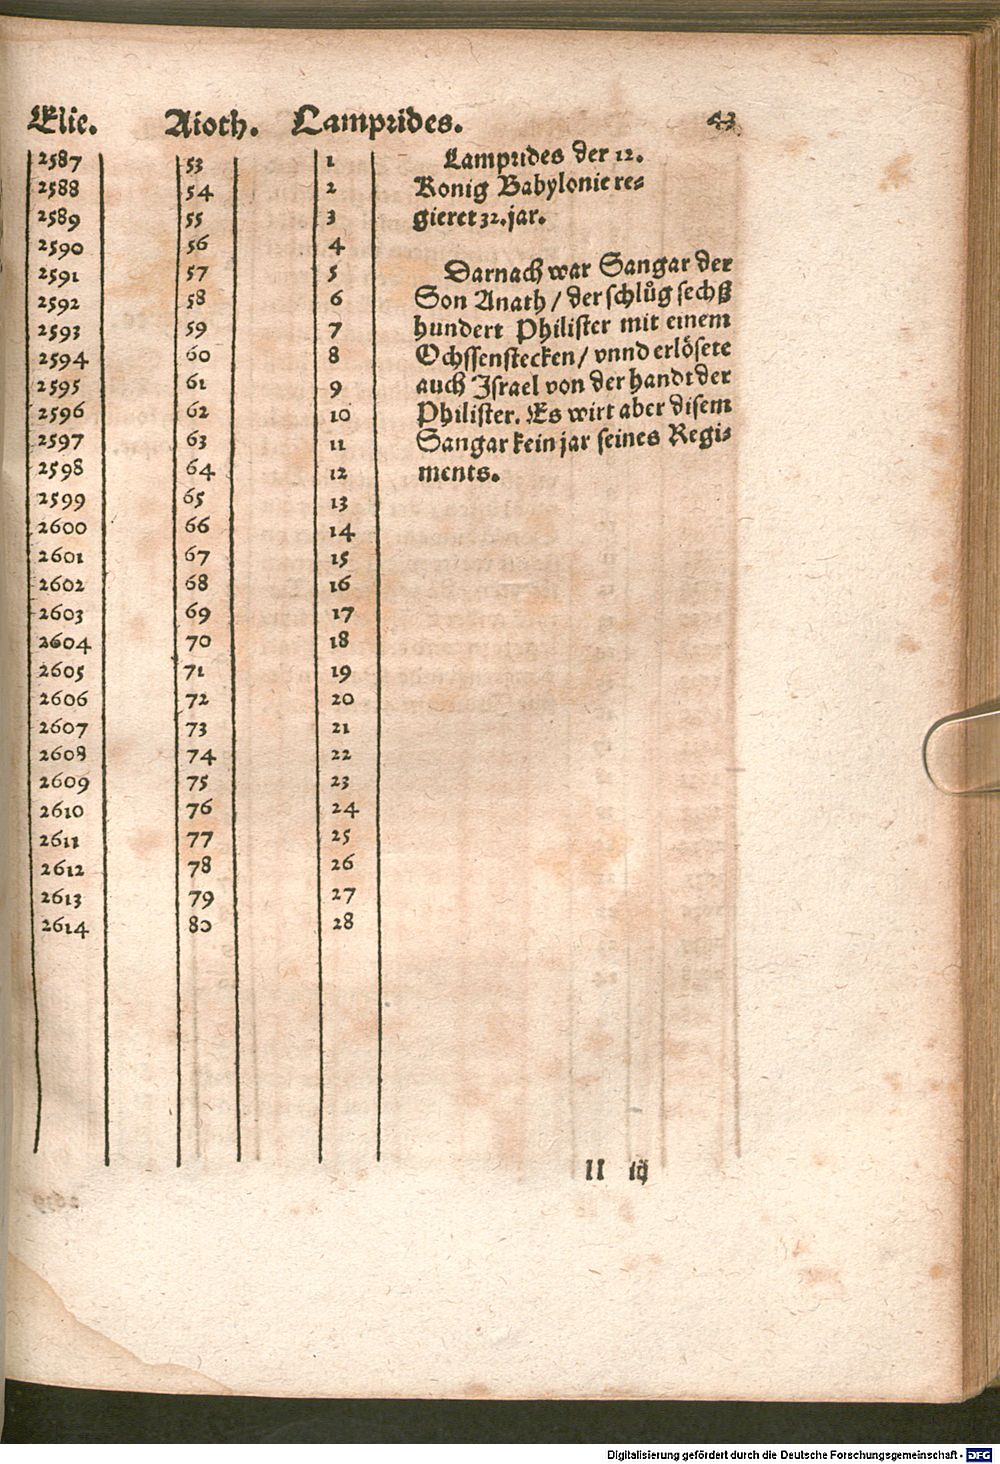 Elie. Aioth. Lamprides. 43
2587 53 1
2588 54 2
2589 55 3
2590 56 4
2591 57 5
2592 58 6
2593 59 7
2594 60 8
2595 61 9
2596 62 10
2597 63 11
2598 64 12
2599 65 13
2600 66 14
2601 67 15
2602 68 16
2603 69 17
2604 70 18
2605 71 19
2606 72 20
2607 73 21
2608 74 22
2609 75 23
2610 76 24
2611 77 25
2612 78 26
2613 79 27
2614 80 28
Lamprides der 12.
Konig Babylonie re⸗
gieret 32. jar.
Darnach war Sangar der
Son Anath / der schlůg sechß
hundert Philister mit einem
Ochssenstecken / vnnd erlösete
auch Israel von der handt der
Philister. Es wirt aber disem
Sangar kein jar seines Regi⸗
ments.
ll iij
Digitalisierung gefördert durch die Deutsche Forschungsgemeinschaft - DFG